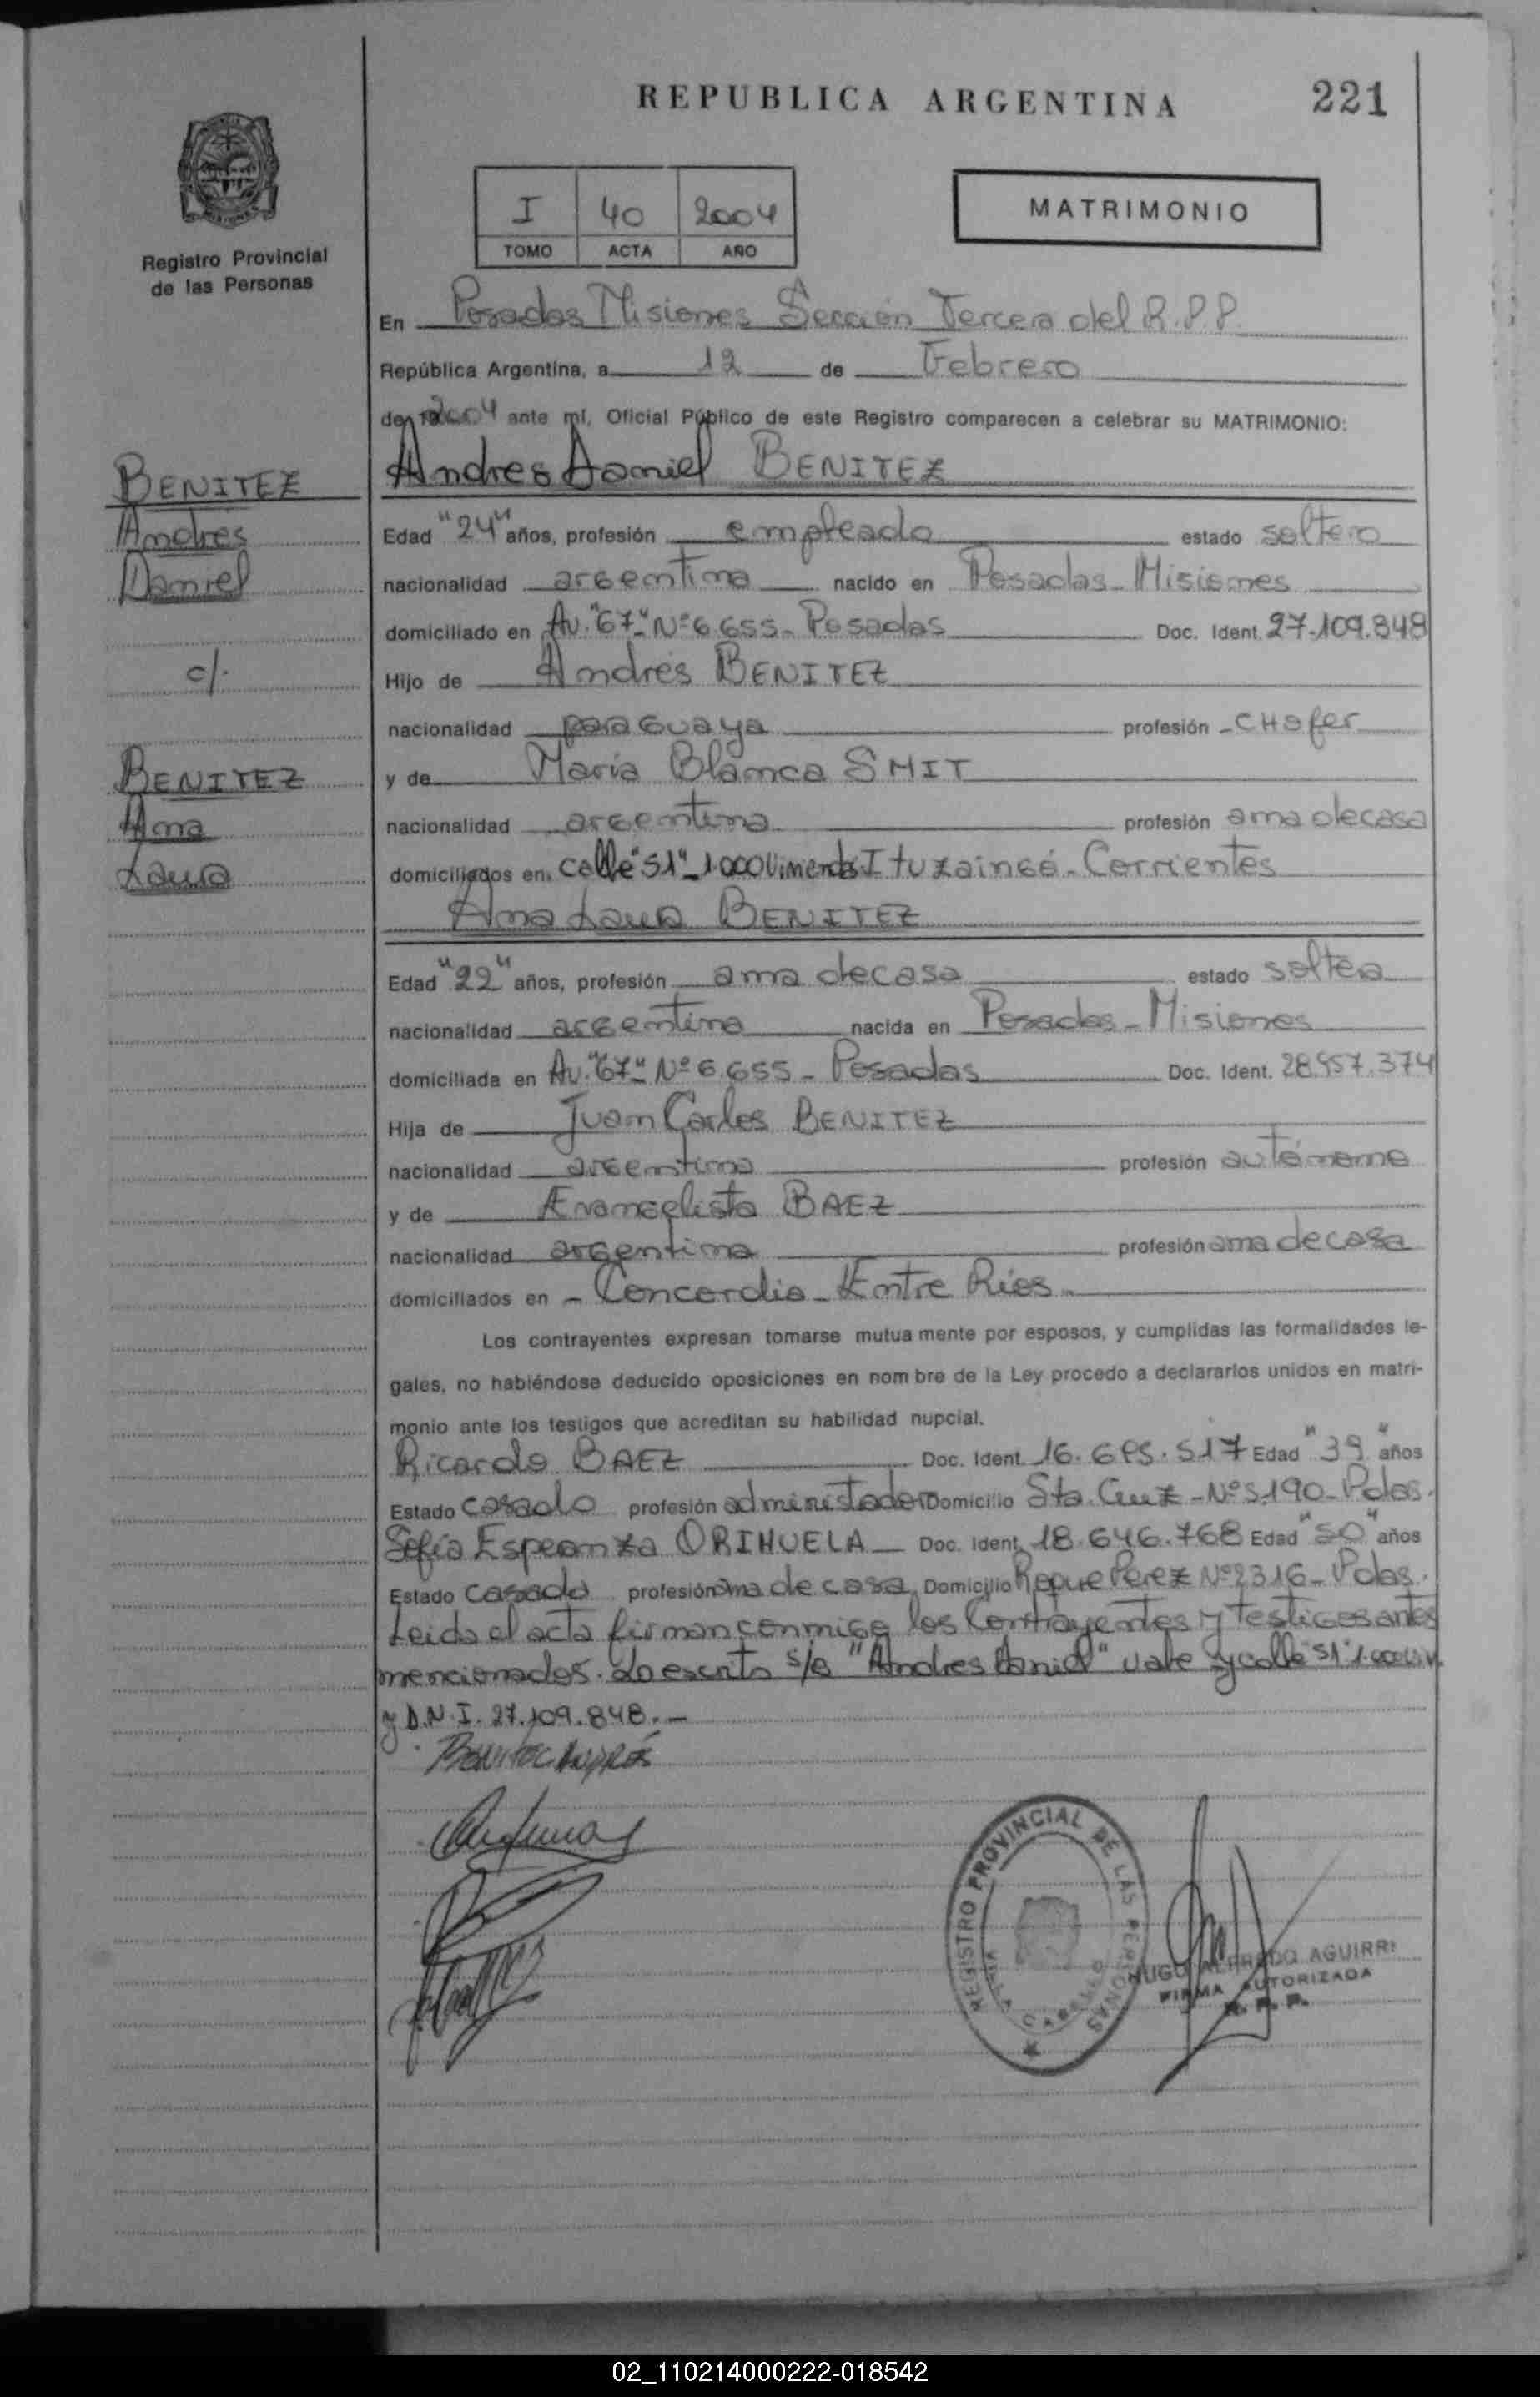 REPUBLICA ARGENTINA
221
Registro Provincial
de las Personas
I 40 2004
TOMO ACTA AÑO
MATRIMONIO
En Posadas Misiones Sección Tercera del R.P.P.
República Argentina, a 12 de Febrero
de 2004 ante mí, Oficial Público de este Registro comparecen a celebrar su MATRIMONIO:
BENITEZ
Andrés
Daniel
c/.
BENITEZ
Ana
Laura
Andres Daniel BENITEZ
Edad "24" años, profesión empleado estado soltero
nacionalidad argentina nacido en Posadas - Misiones
domiciliado en Av. "67" Nº 6.655 - Posadas Doc. Ident. 27.109.848
Hijo de Andrés BENITEZ
nacionalidad paraguaya profesión - CHofer
y de María Blanca SMIT
nacionalidad argentina profesión ama de casa
domiciliados en calle "51" - 1.000 Viviendas Ituzaingó - Corrientes
Ana Laura BENITEZ
Edad "22" años, profesión ama de casa estado soltera
nacionalidad argentina nacida en Posadas - Misiones
domiciliada en Av. "67" Nº 6.655 - Posadas Doc. Ident. 28.957.374
Hija de Juan Carlos BENITEZ
nacionalidad argentina profesión autónomo
y de Evangelista BAEZ
nacionalidad argentina profesión ama de casa
domiciliados en - Concordia - Entre Ríos -
Los contrayentes expresan tomarse mutua mente por esposos, y cumplidas las formalidades le-
gales, no habiéndose deducido oposiciones en nom bre de la Ley procedo a declararlos unidos en matri-
monio ante los testigos que acreditan su habilidad nupcial.
Ricardo BAEZ Doc. Ident. 16.695.517 Edad "39" años
Estado casado profesión administrador Domicilio Sta. Cruz - Nº 5.190 - Pdas.
Sofía Esperanza ORIHUELA - Doc. Ident. 18.646.768 Edad "50" años
Estado casada profesión ama de casa Domicilio Roque Perez Nº 2316 - Pdas.
Leida el acta firman conmigo los Contrayentes y testigos antes
mencionados. Lo escrito s/a "Andres Daniel" vale y calle "51" 1.000
y D.N.I. 27.109.848. -
BENITEZ ANDRÉS
REGISTRO PROVINCIAL DE LAS PERSONAS
CABELLO
HUGO ALFREDO AGUIRRE
FIRMA AUTORIZADA
R. P. P.
02_110214000222-018542